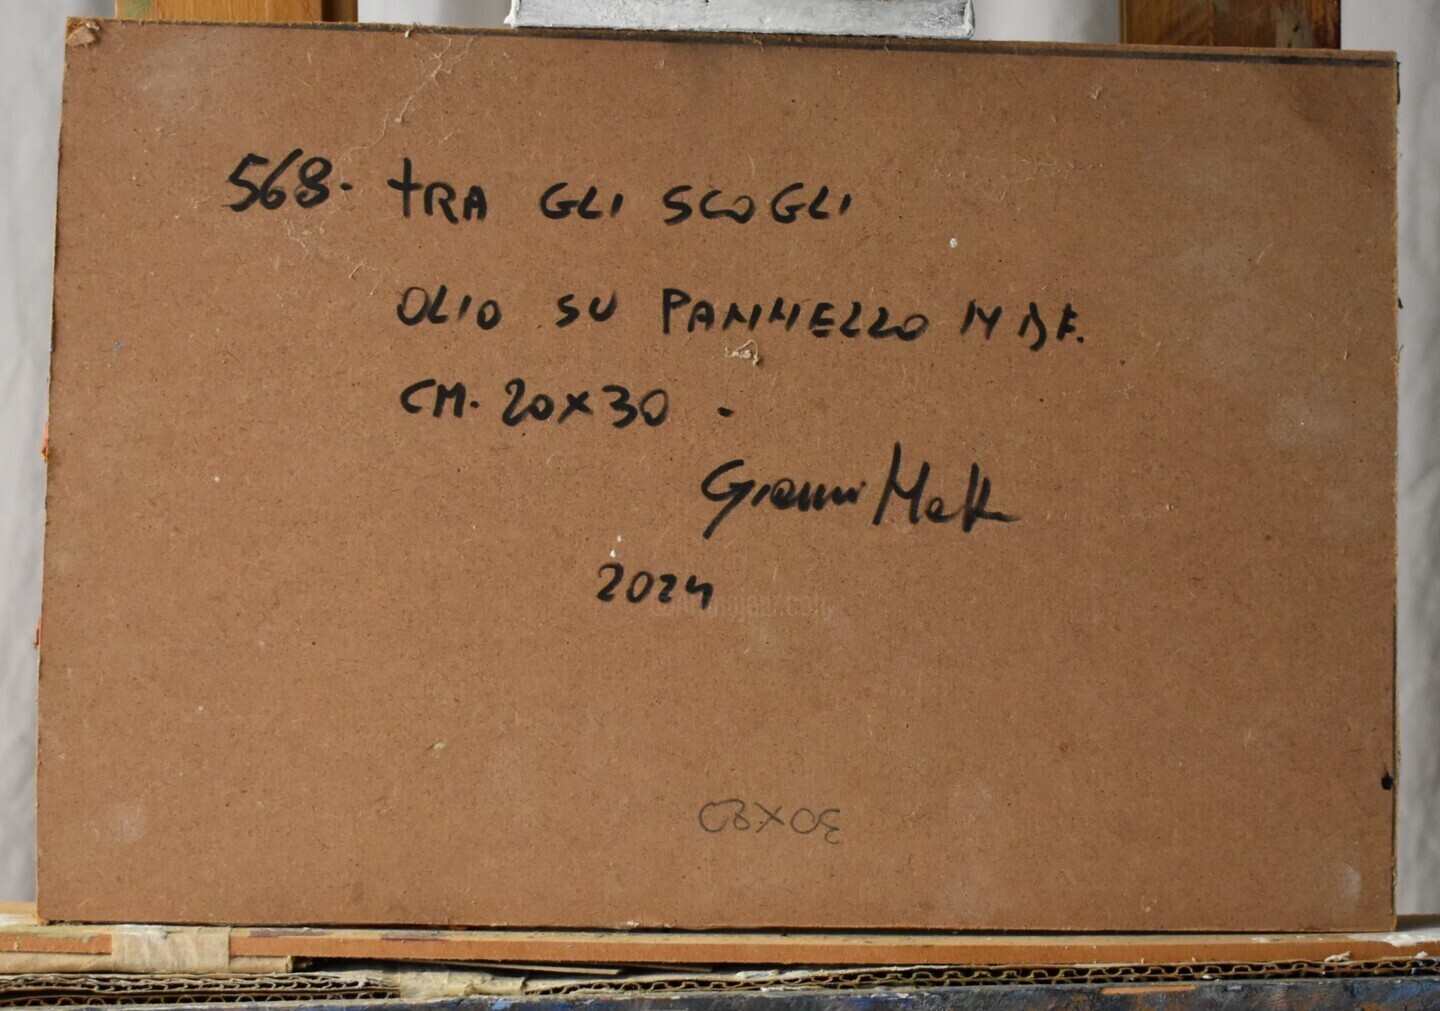 568. TRA GLI SCOGLI
OLIO SU PANNELLO M D F.
CM. 20X30.
Gianni
2024
30X20